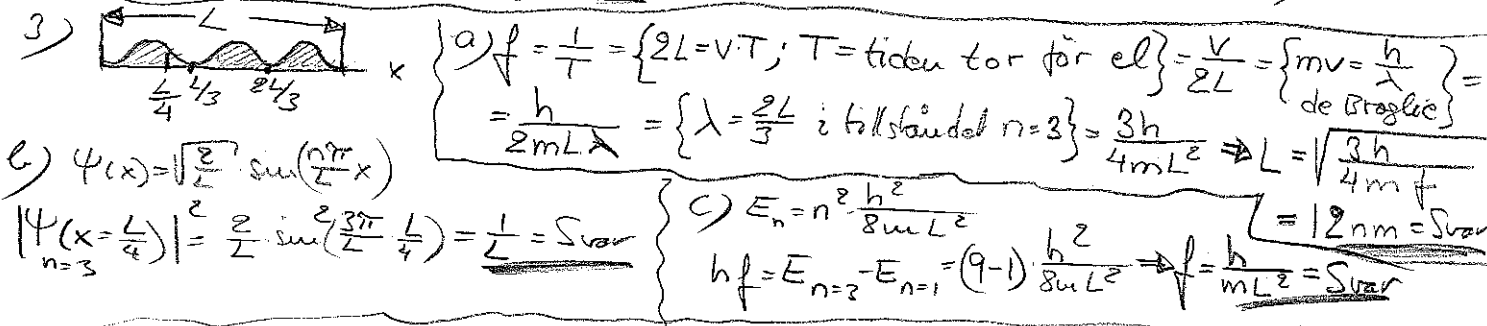 3) L
L/4 L/3 2L/3 x
a) f = 1/T = {2L = v·T; T = tiden tor för el} = v/2L = {mv = h/λ de Broglie} =
= h/2mLλ = {λ = 2L/3 i tillståndet n=3} = 3h/4mL² ⇒ L = √(3h/4mf)
= 12nm = Svar
b) Ψ(x) = √(2/L) · sin(nπ/L x)
|Ψ(x = L/4)|² = 2/L · sin²(3π/L · L/4) = 1/L = Svar
n=3
c) Eₙ = n² · h²/8mL²
hf = Eₙ₌₃ - Eₙ₌₁ = (9-1) · h²/8mL² ⇒ f = h/mL² = Svar